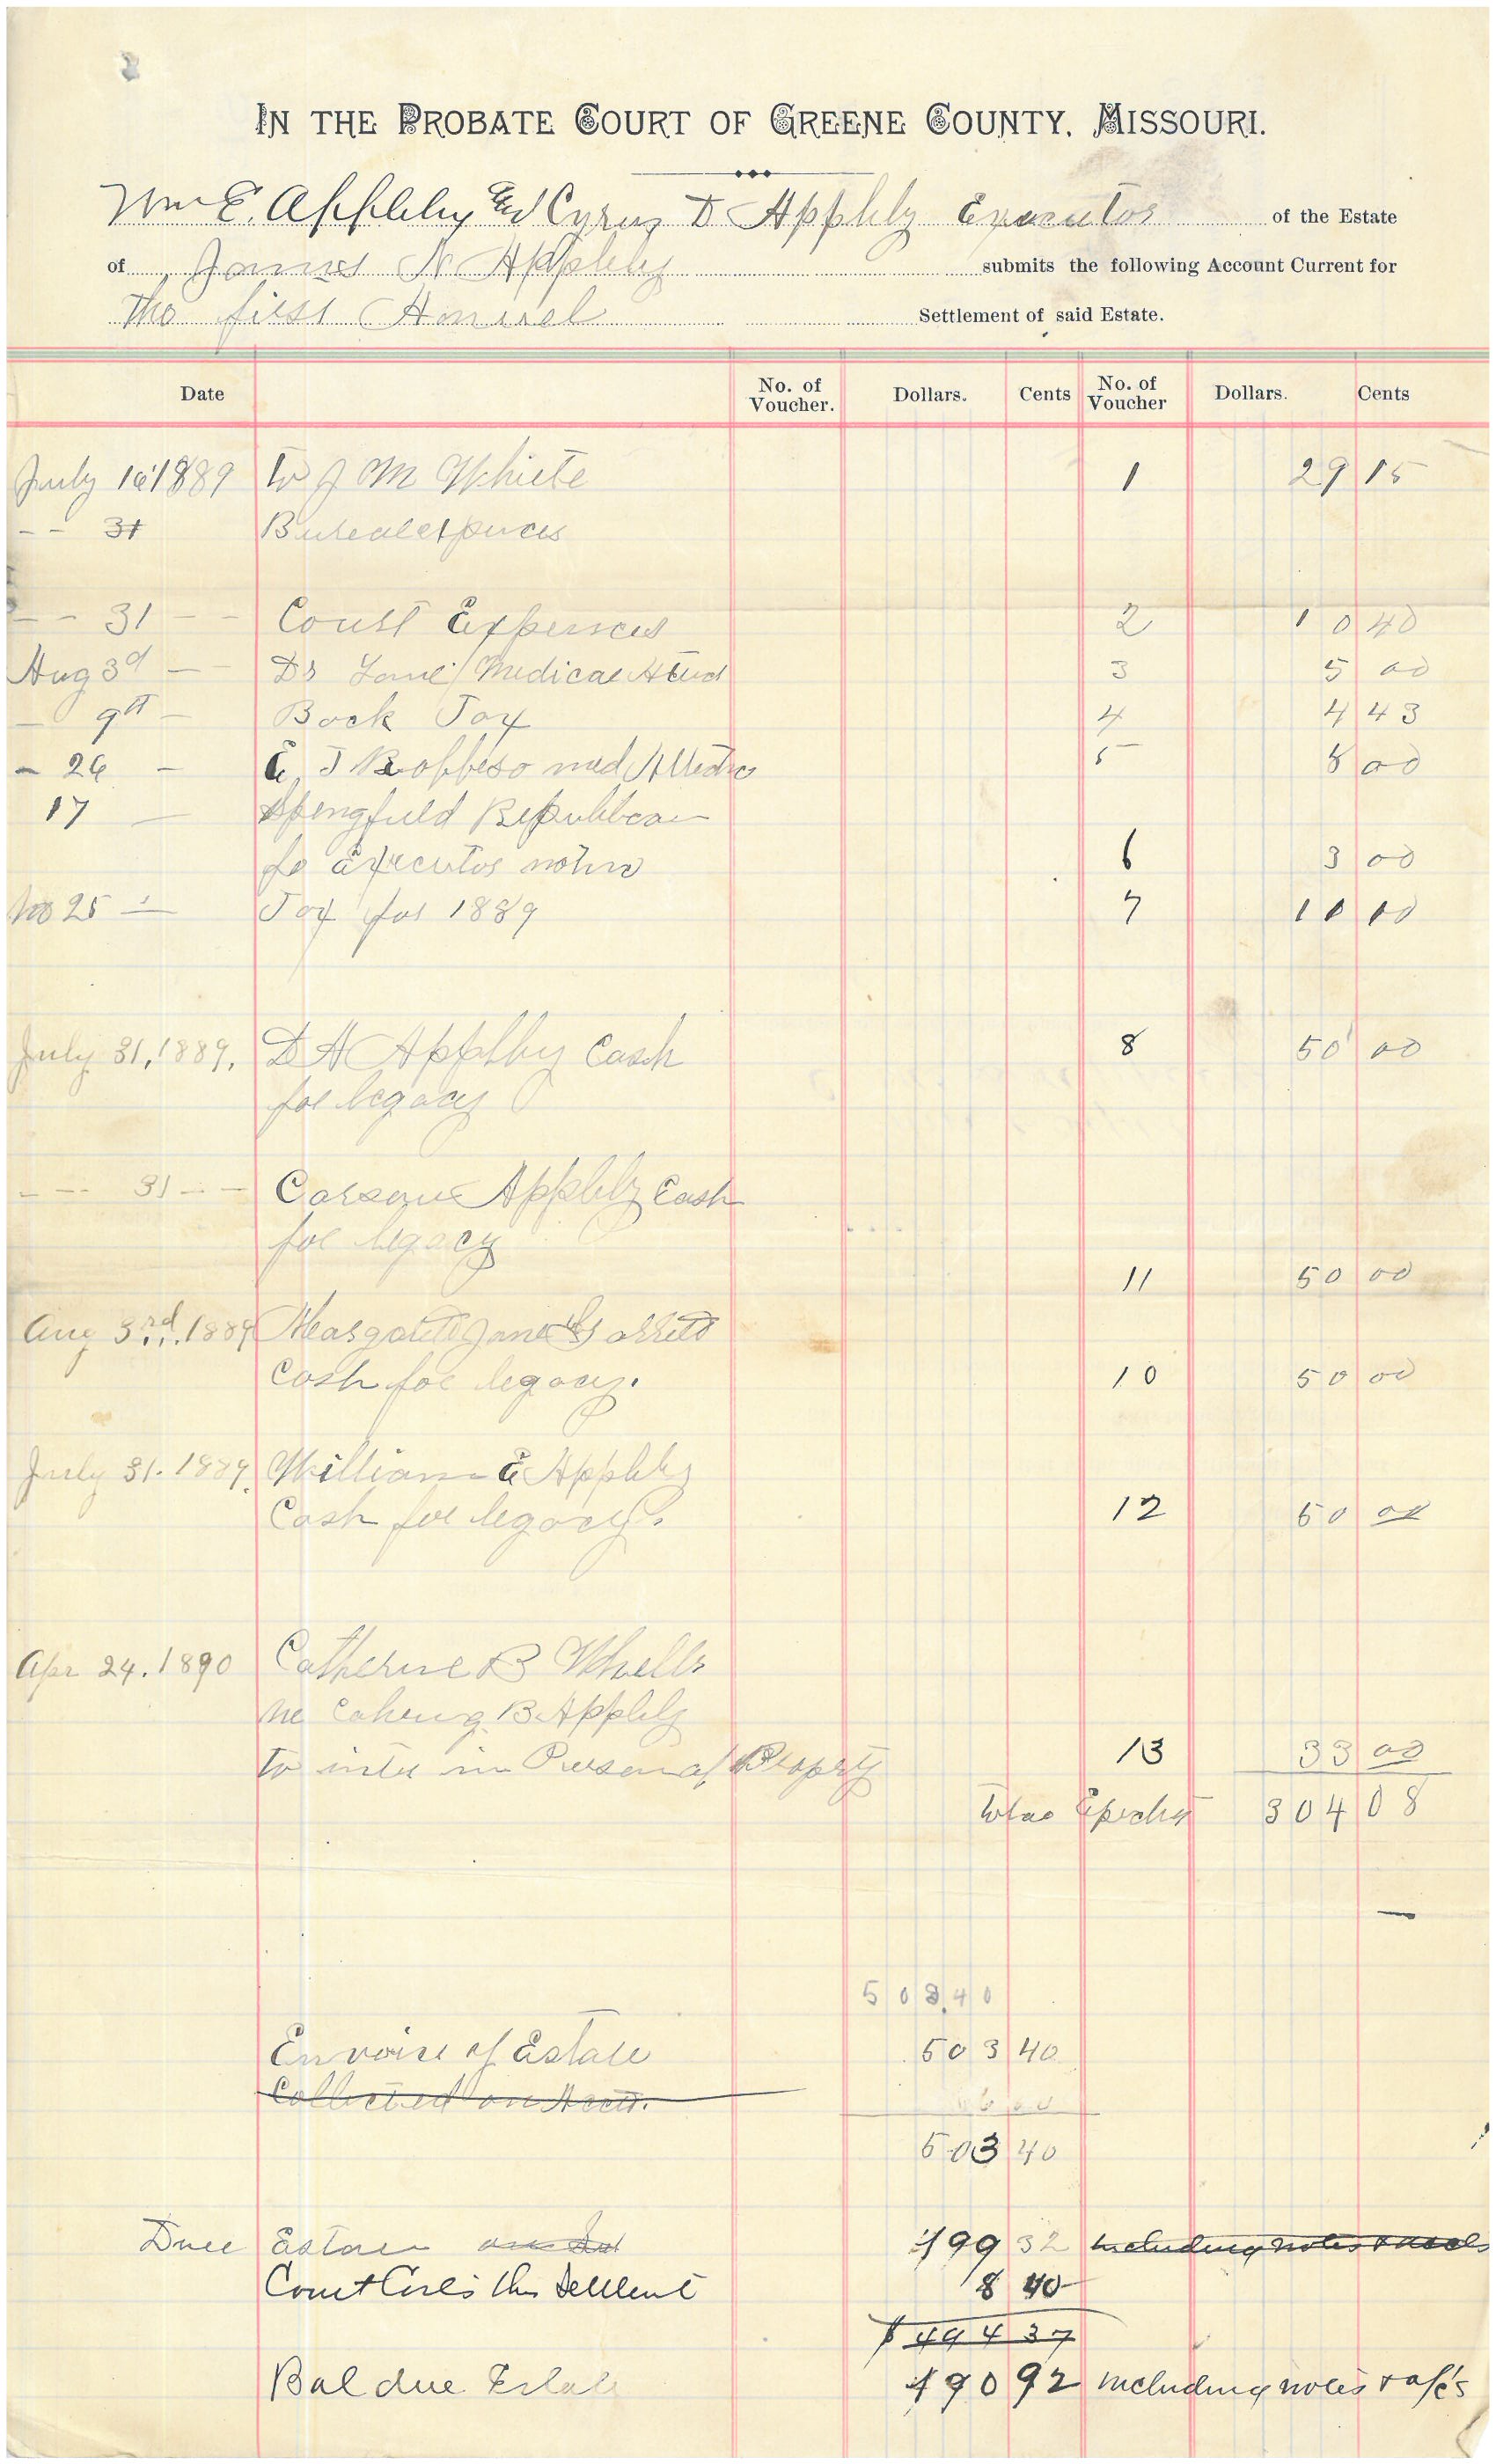 IN THE PROBATE COURT OF GREENE COUNTY, MISSOURI.
Wm E. Appleby Cyrus D Appleby Executor of the Estate
of James N Appleby submits the following Account Current for
The first Settlement of said Estate.
Date No. of Voucher. Dollars. Cents No. of Voucher Dollars. Cents
July 16 1889 to J M White 1 29 15
- - 31
- - 31 - - Court Expences 2 10 40
Aug 3d - - Dr Medical 3 5 00
- 9th - Back Tax 4 4 43
- 26 - E J 5 8 00
17 - Springfield Republican
Executor 6 3 00
25 - Tax for 1889 7
July 31, 1889. D A Appleby Cash 8 50 00
for legacy
- - - 31 - - Appleby Cash
for legacy
11 50 00
Aug 3rd. 1889 Jane
Cash for legacy. 10 50 00
July 31. 1889. William E Appleby
Cash for legacy. 12 50 00
Apr 24. 1890 Catherine B
B Appleby
to in 13 33 00
304 08
503.40
of Estate 503 40
Collected on Acct.
503 40
Due 199 32 including notes &
Court this 8 40
$ 494 37
Bal due Estate 190 92 including notes & a/c's